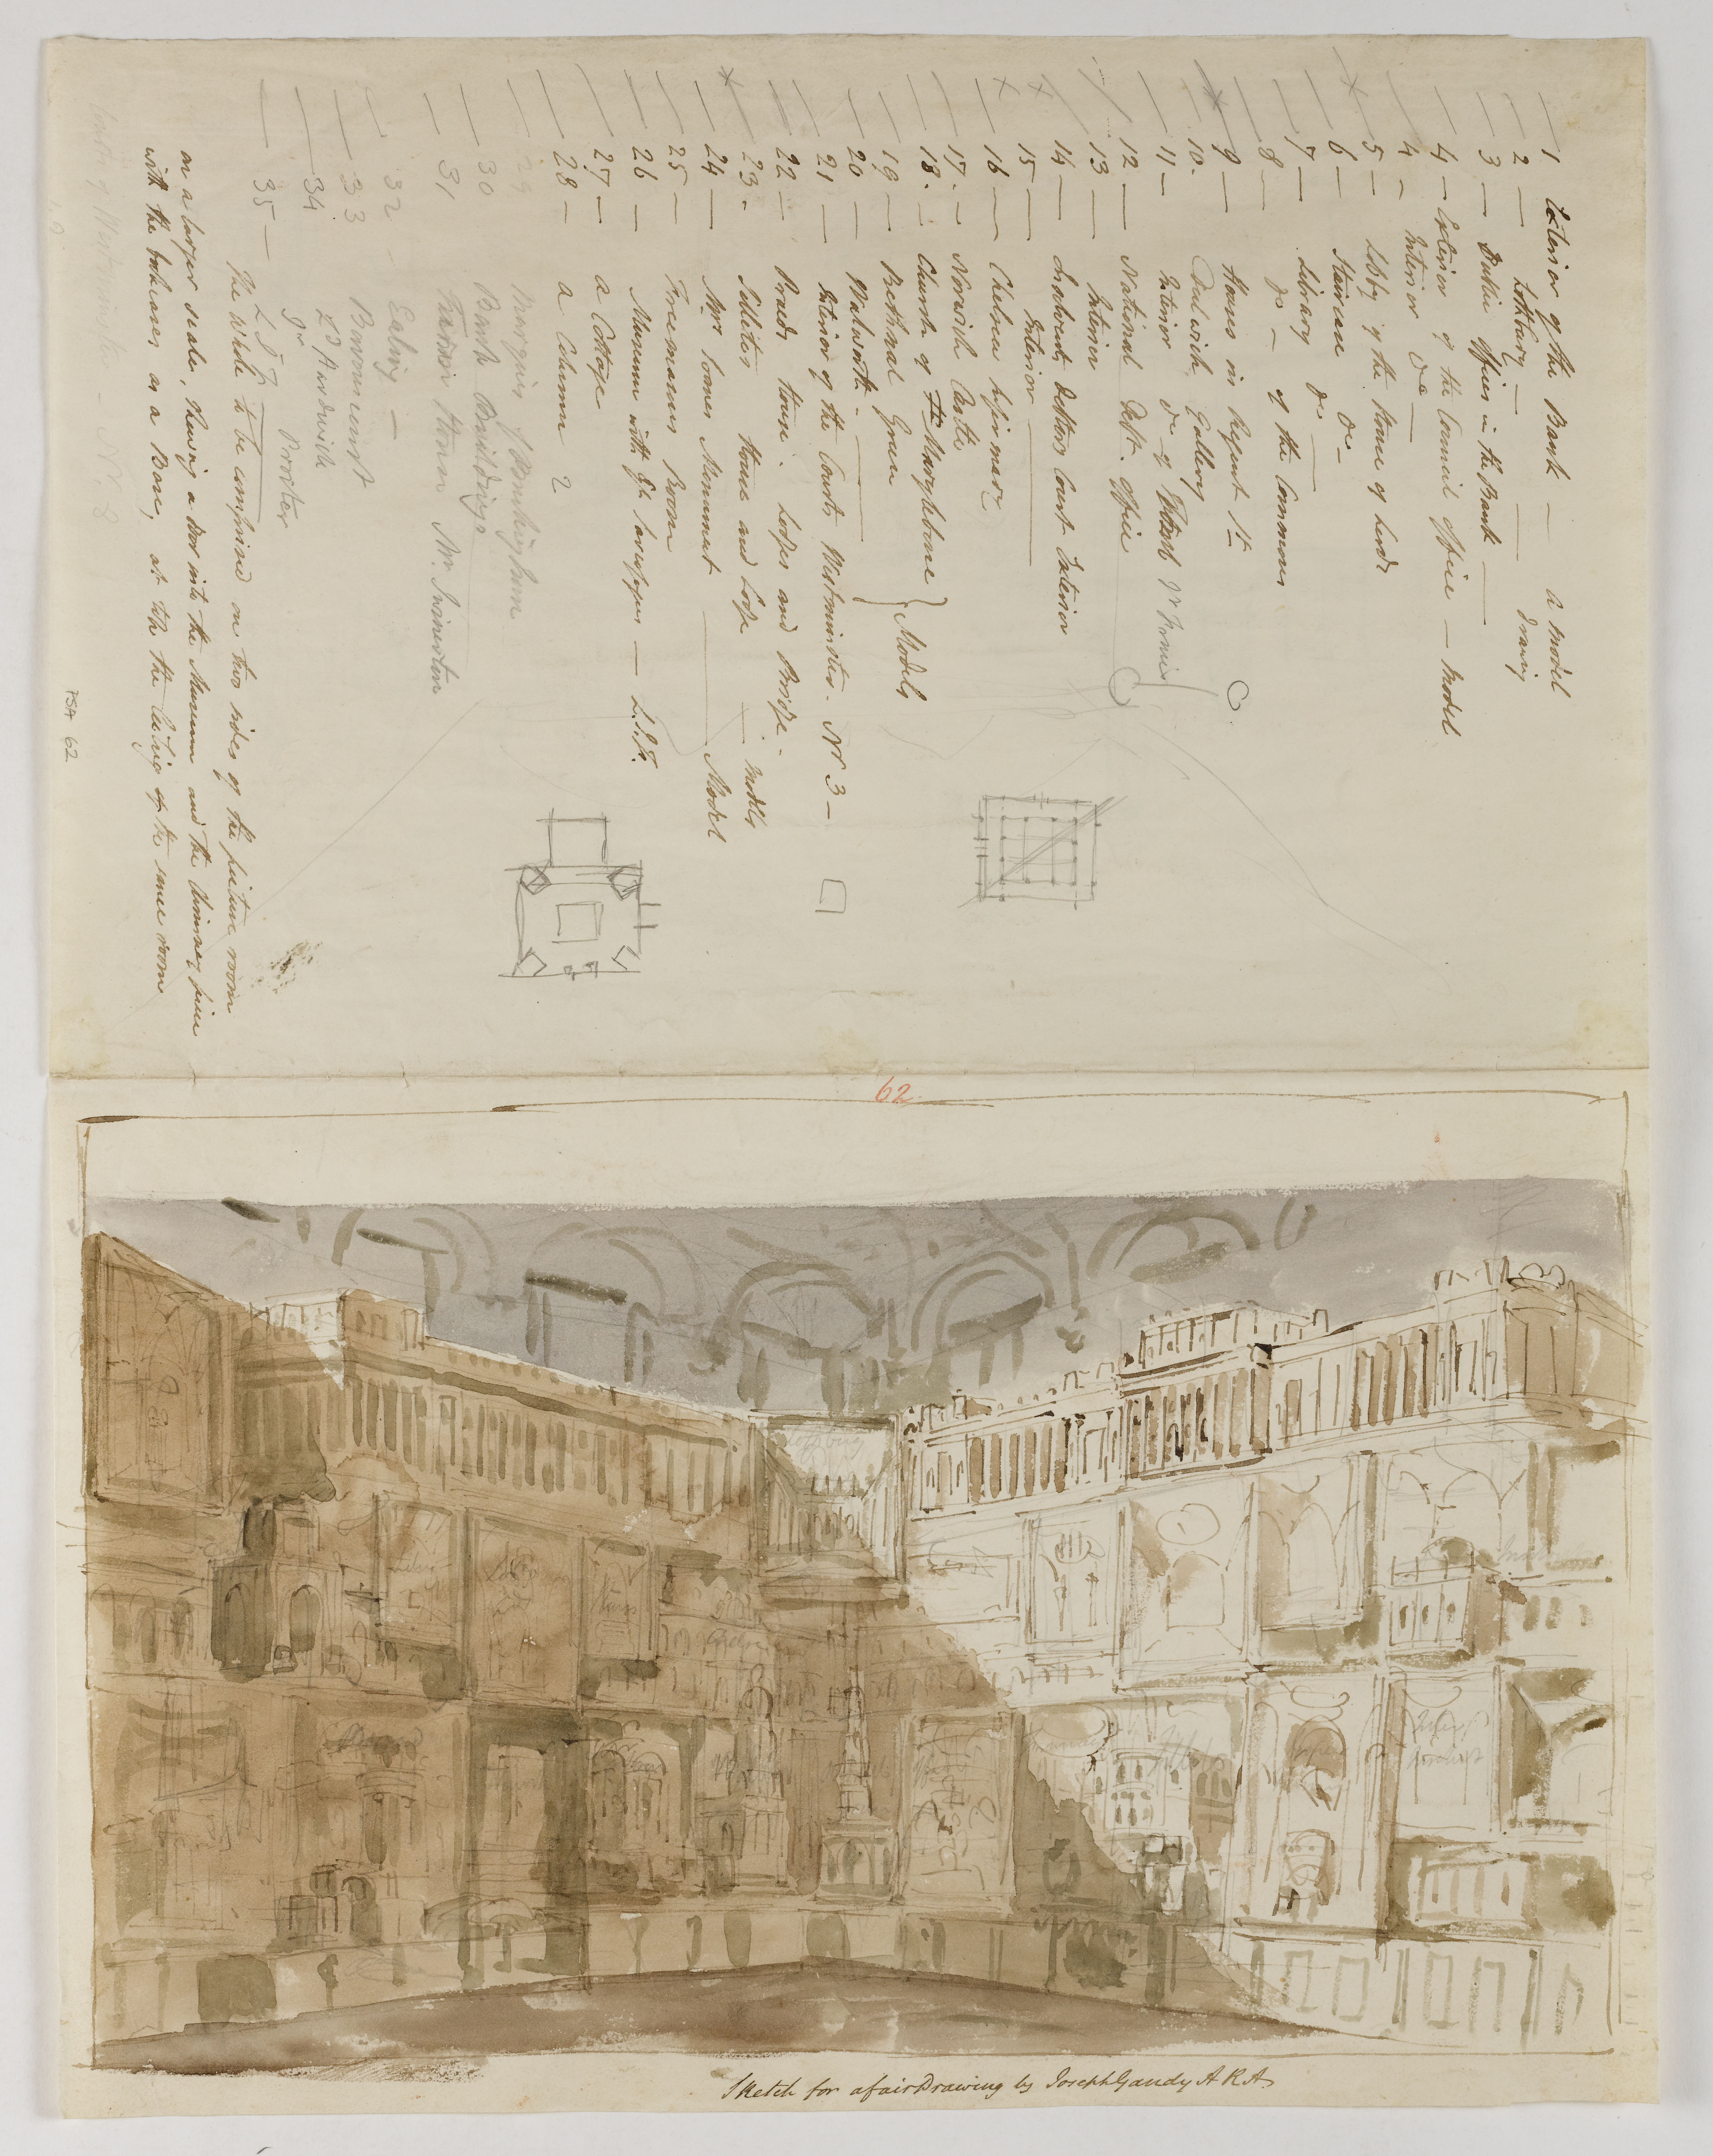 1 Exterior of the Bank — a Model
2 — Lothbury — Drawing
3 — Public offices in the Bank —
4 — Exterior of the Council Office — Model
4 — Interior Do —
5 — Lobby of the House of Lords
6 — Staircase Do —
7 — Library Do —
8 — Do — of the Commons
9 — House in Regent St
10. Dulwich Gallery
11 — Interior Do of
12 — National Debt. Office
13 — Interior
14 — Insolvent Debtors Court Exterior
15 — Interior —
16 — Chelsea Infirmary
17. — Norwich Castle
18. — Church of St Marylebone
19 — Bethnal Green } Models
20 — Walworth —
21 — Interior of the Courts Westminster. No 3 —
22 — Praeds House. Lodges and Bridge —
23. Tillets House and Lodge — Models
24 — Mrs Soanes Monument — Model
25 — Freemasons Room
26 — Museum with Sarcophagus — L.I.F.
27 — a Cottage
28 — a Column 2
29 Marquis of Buckingham
30 Bank Buildings
31 Mr. Simeon
32 — Ealing —
33 Baronscourt
34 Ld Hardwick
35 — L.I.F. Praeter
The whole to be comprised on two sides of the picture room
on a larger scale, shewing a door into the Museum and the Chimney piece
with the bookcases as a Base, at with the Ceiling of the same room
Courts of Westminster — No. 8
PSA 62
62
Sketch for a fair Drawing by Joseph Gandy A R A